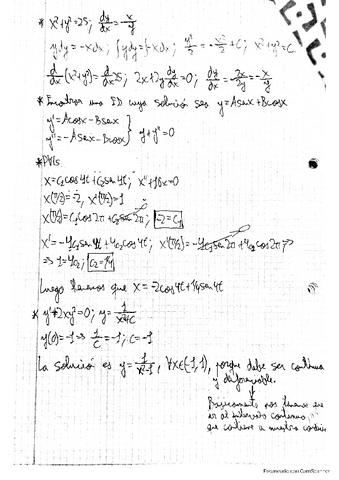 * x²+y²=25; dy/dx = -x/y
ydy = -xdx; ∫ydy = ∫-xdx; y²/2 = -x²/2 + C; x²+y²=C
d/dx (x²+y²) = d/dx 25; 2x+2y dy/dx = 0; dy/dx = -2x/2y = -x/y
* Encontrar una ED cuya solución sea y = Asenx+Bcosx
y' = Acosx - Bsenx
y'' = -Asenx - Bcosx } y+y''=0
* PVIs
x = c₁cos4t + c₂sen4t; x''+16x=0
x(π/2) = -2, x'(π/2) = 1
x(π/2) = c₁cos2π + c₂sen2π; -2 = c₁
x' = -4c₁sen4t + 4c₂cos4t; x'(π/2) = -4c₁sen2π + 4c₂cos2π
⇒ 1 = 4c₂; c₂ = 1/4
Luego tenemos que x = -2cos4t + 1/4sen4t
* y'+2xy²=0; y = 1/x²+C
y(0) = -1 ⇒ 1/C = -1; C = -1
La solución es y = 1/x²-1, ∀x∈(-1,1), porque debe ser continua
y diferenciable.
Básicamente nos
al intervalo continuo
que contiene a nuestra
Escaneado con CamScanner